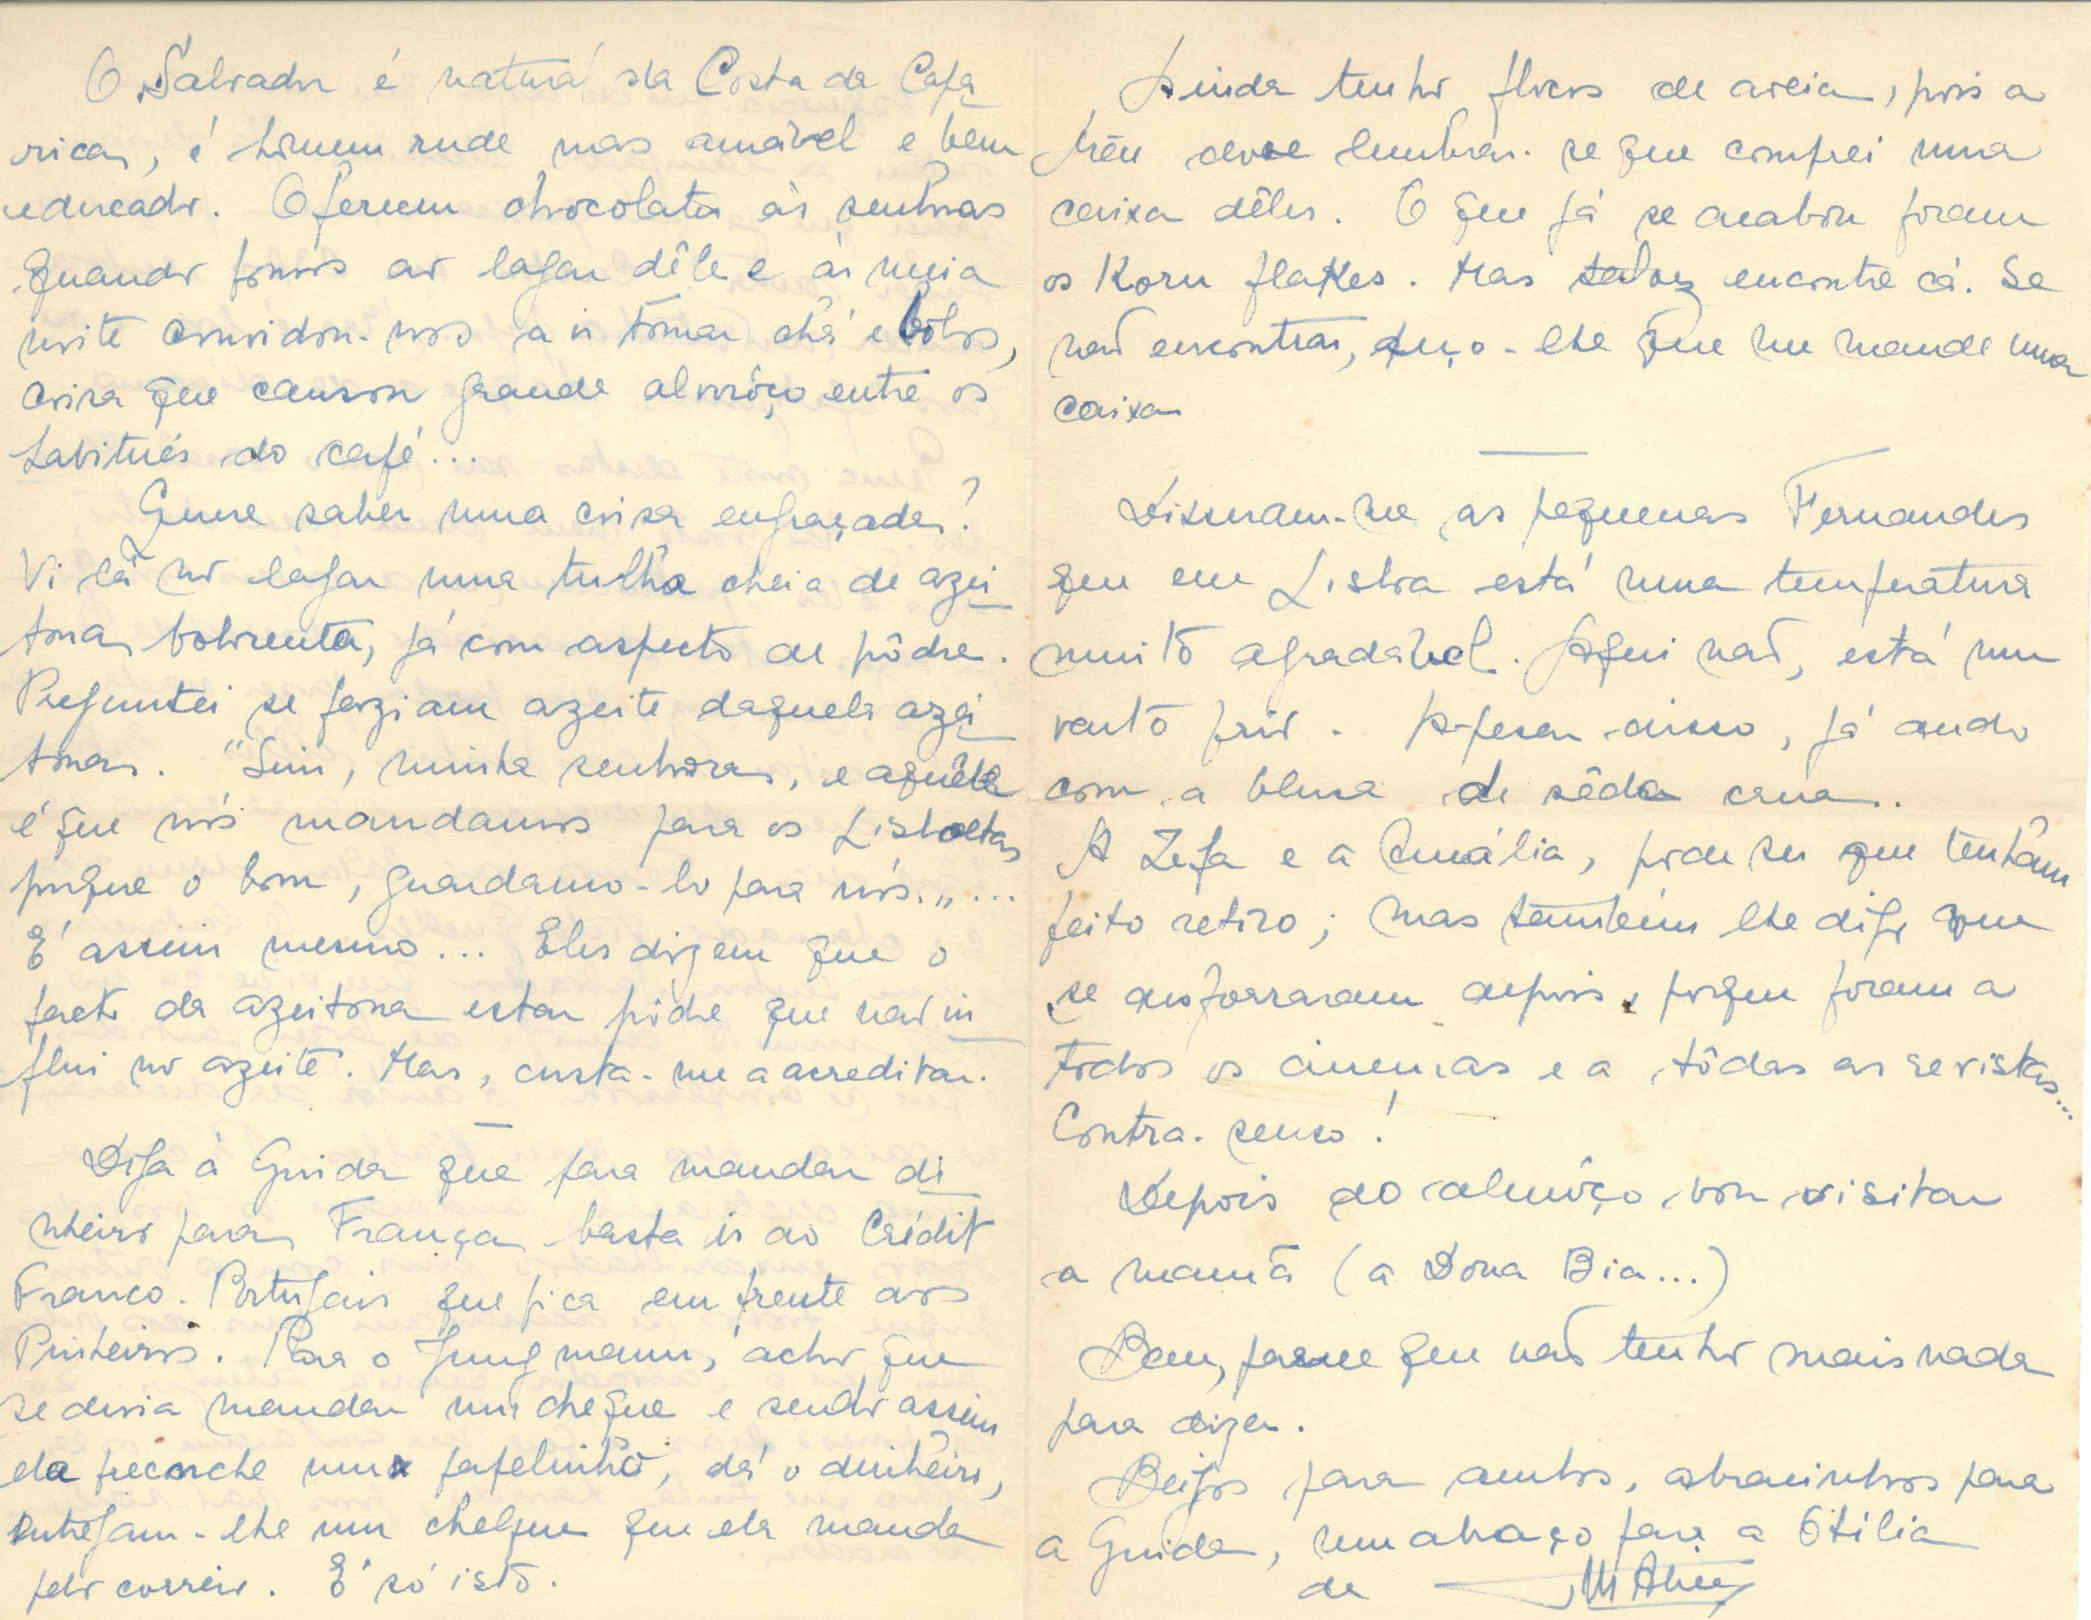 O Salvador é natural da Costa da Capa
rica, é homem rude mas amável e bem
educado. Ofereceu chocolates às senhoras
quando fomos ao lagar dêle e à meia
noite convidou-nos a ir tomar chá e bôlos,
coisa que causou grande alvorôço entre os
habitués do café...
Quere saber uma coisa engraçada?
Vi lá no lagar uma tulha cheia de azei
tona bolorenta, já com aspecto de pôdre.
Preguntei se faziam azeite daquela azei
tona. "Sim, minha senhora, e aquele
é que nós mandamos para os Lisboetas
porque o bom, guardamo-lo para nós.„...
E' assim mesmo... Eles dizem que o
facto da azeitona estar pôdre que não in
flui no azeite. Mas, custa-me a acreditar.
Diga à Guida que para mandar di
nheiro para França basta ir ao Crédit
Franco-Portugais que fica em frente aos
Pinheiros. Para o Jungmann, acho que
se devia mandar um cheque e sendo assim
ela preenche um papelinho, dá o dinheiro,
entregam-lhe um cheque que ela manda
pelo correio. E' só isto.
Ainda tenho flocos de aveia, pois a
Mãe deve lembrar-se que comprei uma
caixa dêles. O que já se acabou foram
os Korn flakes. Mas talvez encontre cá. Se
não encontrar, peço-lhe que me mande uma
caixa
Disseram-me as pequenas Fernandes
que em Lisboa está uma temperatura
muito agradável. Aqui não, está um
vento frio. Apesar disso, já ando
com a blusa de sêda crua.
A Zefa e a Amália, pode ser que tenham
feito retiro; mas também lhe digo que
se desforraram depois, porque foram a
todos os cinemas e a tôdas as revistas...
Contra-senso!
Depois do almôço vou visitar
a mamã (a Dona Bia...)
Bem, parece que não tenho mais nada
para dizer.
Beijos para ambos, abracinhos para
a Guida, um abraço para a Otília
de